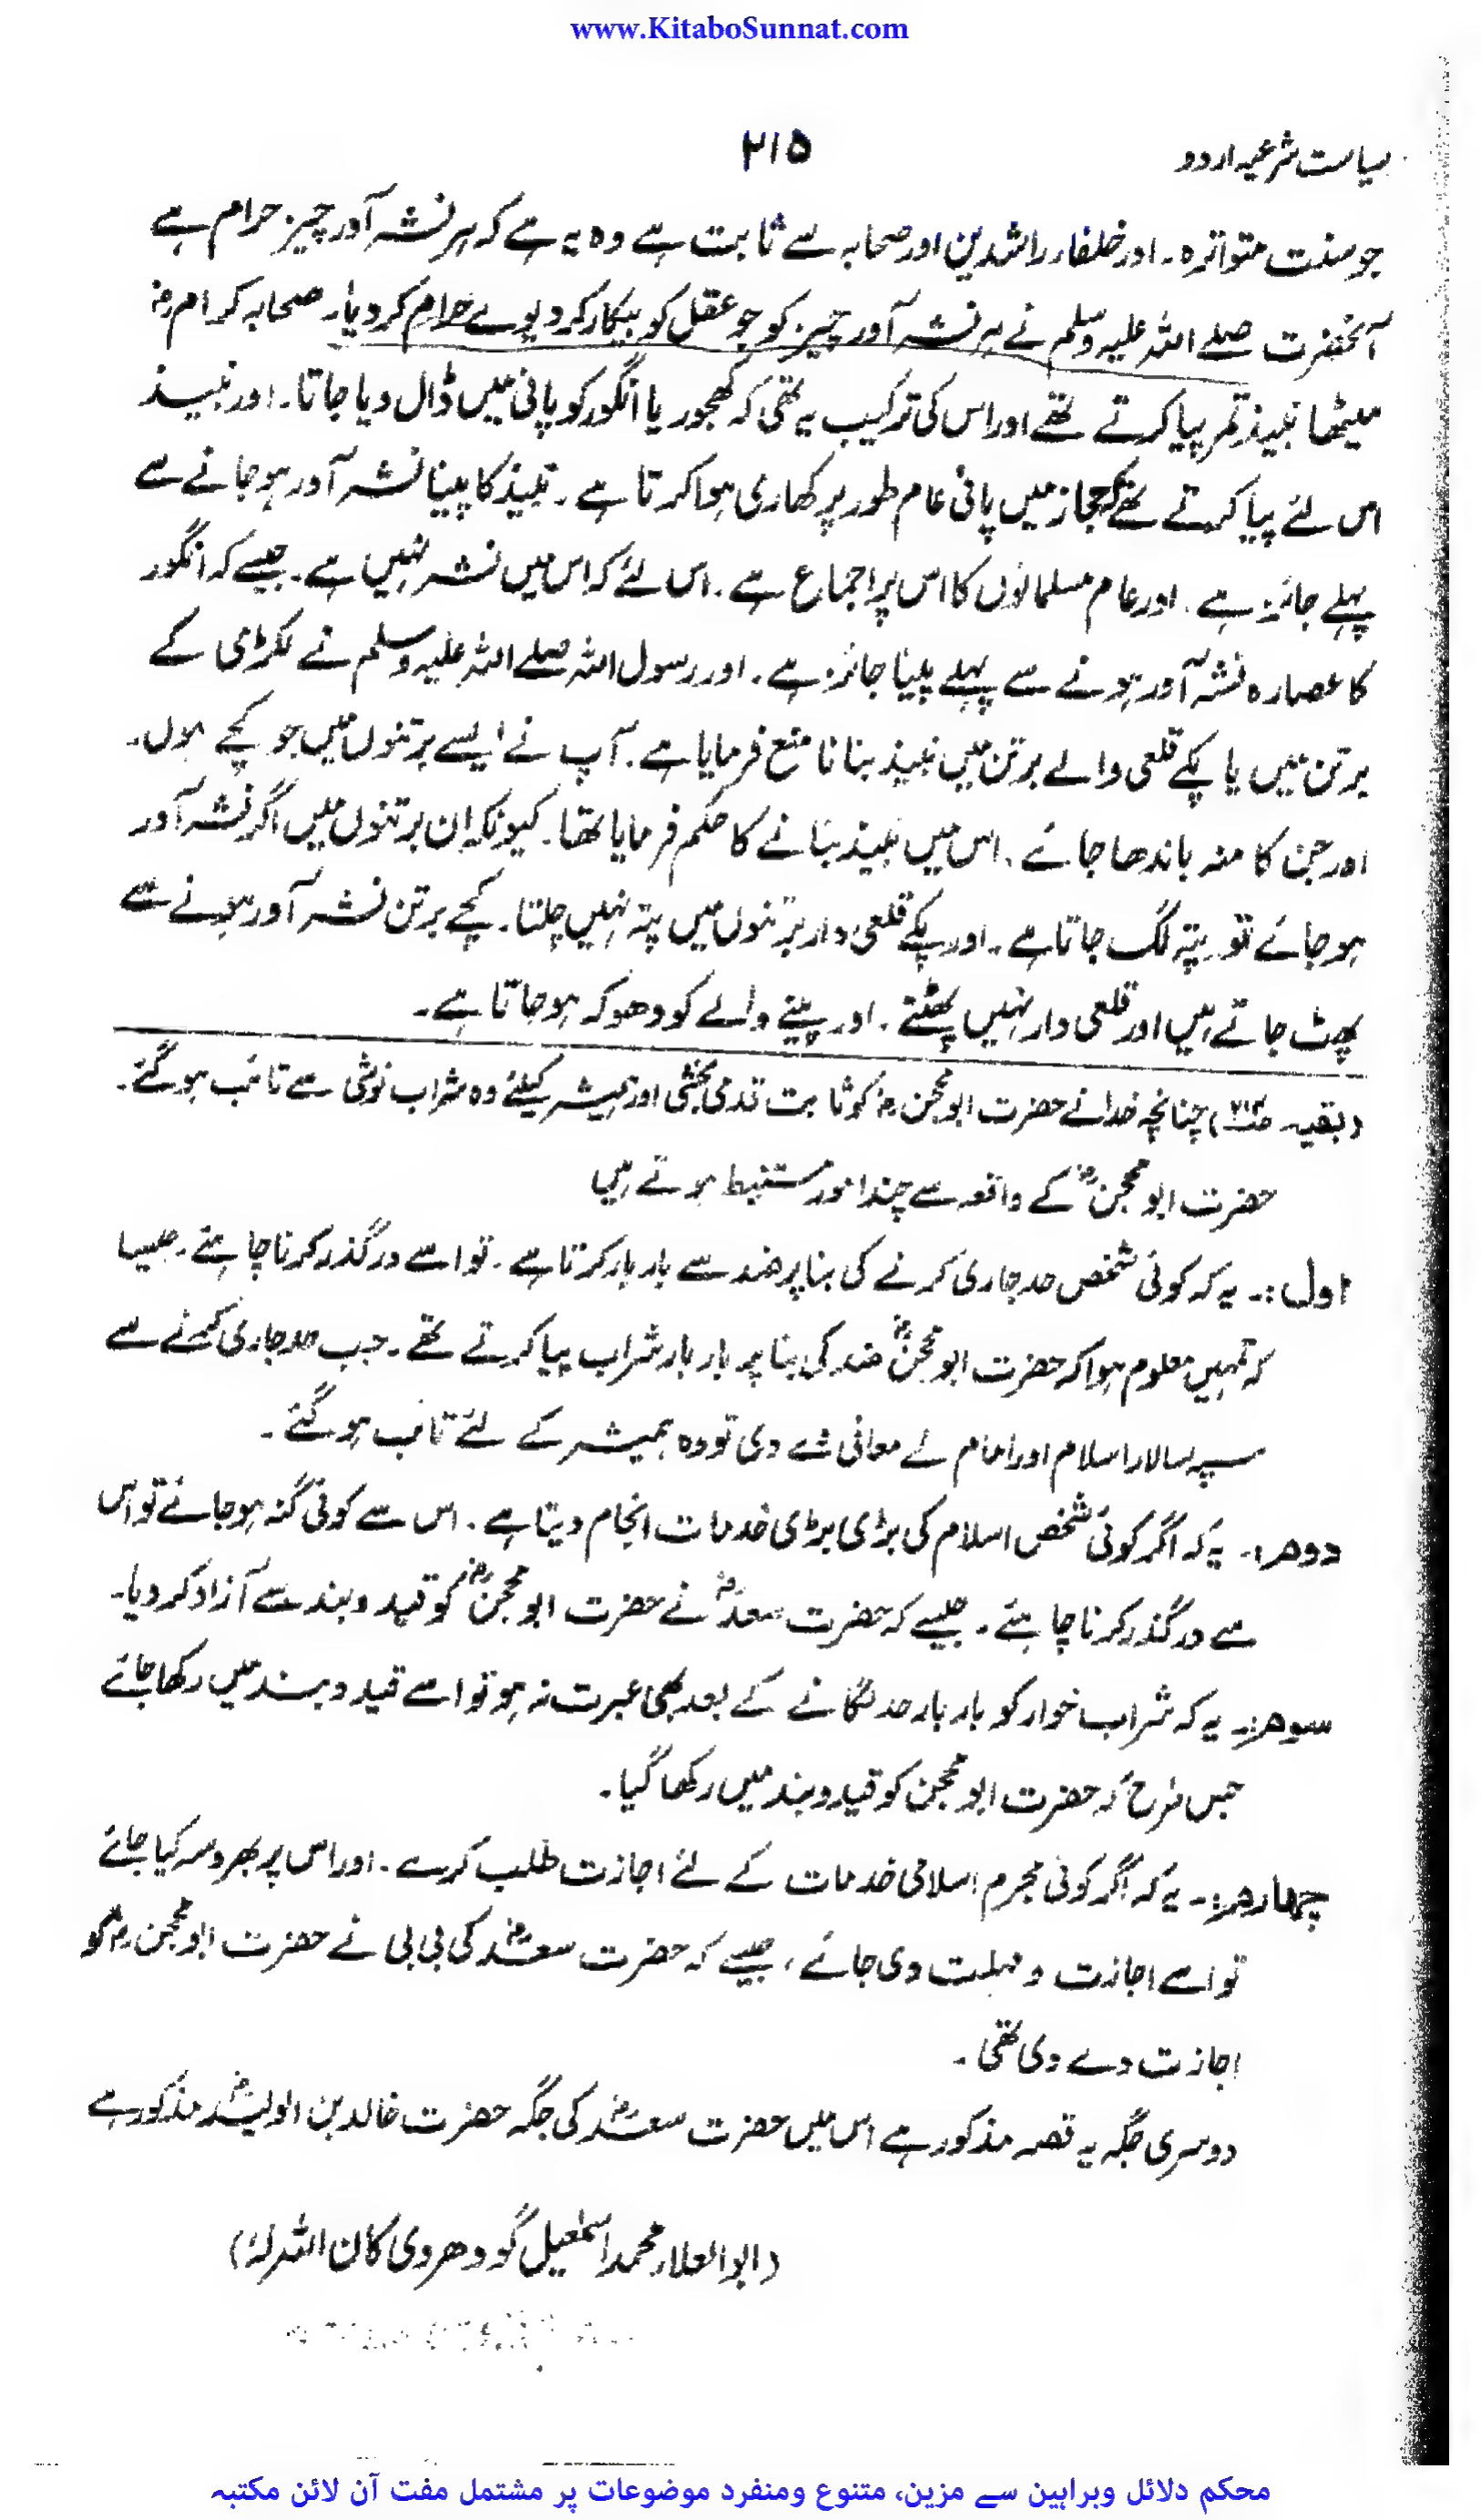 www.KitaboSunnat.com
سیاست شرعیہ اردو
۲۱۵
جو سنت متواترہ۔ اور خلفاء راشدین اور صحابہ سے ثابت ہے وہ یہ ہے کہ ہر نشہ آور چیز حرام ہے
آنحضرت صلے اللہ علیہ وسلم نے ہر نشہ آور چیز کو جو عقل کو بیکار کر دیوے حرام کر دیا۔ صحابہ کرام رضہ
میٹھا نبیذ تمر پیا کرتے تھے اور اس کی ترکیب یہ تھی کہ کھجور یا انگور کو پانی میں ڈال دیا جاتا۔ اور نبیذ
اس لئے پیا کرتے تھے کہ حجاز میں پانی عام طور پر کھاری ہوا کرتا ہے۔ نبیذ کا پینا نشہ آور ہو جانے سے
پہلے جائز ہے۔ اور عام مسلمانوں کا اس پر اجماع ہے۔ اس لئے کہ اس میں نشہ نہیں ہے۔ جیسے کہ انگور
کا عصارہ نشہ آور ہونے سے پہلے پینا جائز ہے۔ اور رسول اللہ صلے اللہ علیہ وسلم نے لکڑی کے
برتن میں یا پکے قلعی والے برتن میں نبیذ بنانا منع فرمایا ہے۔ آپ نے ایسے برتنوں میں جو کچے ہوں۔
اور جن کا منہ باندھا جائے۔ اس میں نبیذ بنانے کا حکم فرمایا تھا۔ کیونکہ ان برتنوں میں اگر نشہ آور
ہو جائے تو پتہ لگ جاتا ہے۔ اور پکے قلعی دار برتنوں میں پتہ نہیں چلتا۔ کچے برتن نشہ آور ہونے سے
پھٹ جاتے ہیں اور قلعی دار نہیں پھٹتے۔ اور پینے والے کو دھوکہ ہو جاتا ہے۔
(بقیہ ) چنانچہ خدا نے حضرت ابو محجن رض کو ثابت قدمی بخشی اور ہمیشہ کیلئے وہ شراب نوشی سے تائب ہو گئے۔
حضرت ابو محجن رض کے واقعہ سے چند امور مستنبط ہوتے ہیں
اول:۔ یہ کہ کوئی شخص حد جاری کرنے کی بنا پر ضد سے بار بار کرتا ہے۔ تو اسے درگذر کرنا چاہئے۔ جیسا
کہ تمہیں معلوم ہوا کہ حضرت ابو محجن رض ضد کی بنا پر بار بار شراب پیا کرتے تھے۔ جب حد جاری کرنے سے
سپہ سالار اسلام اور امام نے معافی دے دی تو وہ ہمیشہ کے لئے تائب ہو گئے۔
دوم:۔ یہ کہ اگر کوئی شخص اسلام کی بڑی بڑی خدمات انجام دیتا ہے۔ اس سے کوئی گنہ ہو جائے تو اس
سے درگذر کرنا چاہئے۔ جیسے کہ حضرت سعد رض نے حضرت ابو محجن رض کو قید و بند سے آزاد کر دیا۔
سوم:۔ یہ کہ شراب خوار کو بار بار حد لگانے کے بعد بھی عبرت نہ ہو تو اسے قید و بند میں رکھا جائے
جس طرح کہ حضرت ابو محجن کو قید و بند میں رکھا گیا۔
چہارم:۔ یہ کہ اگر کوئی مجرم اسلامی خدمات کے لئے اجازت طلب کرے۔ اور اس پر بھروسہ کیا جائے
تو اسے اجازت و مہلت دی جائے، جیسے کہ حضرت سعد رض کی بی بی نے حضرت ابو محجن رض کو
اجازت دے دی تھی۔
دوسری جگہ یہ قصہ مذکور ہے اس میں حضرت سعد رض کی جگہ حضرت خالد بن الولید رض مذکور ہے
(ابو العلاء محمد اسمٰعیل گودھروی کان اللہ لہٗ)
محکم دلائل وبراہین سے مزین، متنوع ومنفرد موضوعات پر مشتمل مفت آن لائن مکتبہ